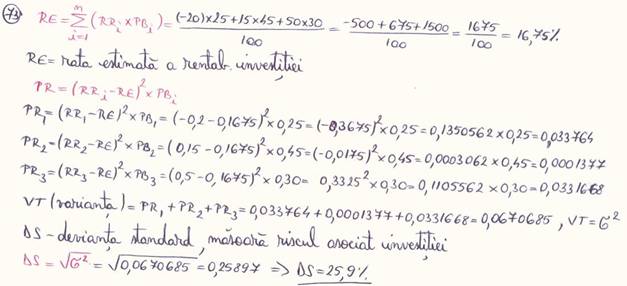 73 RE = \sum_{i=1}^{n} (RR_i × PB_i) = \frac{(-20)×25+15×45+50×30}{100} = \frac{-500+675+1500}{100} = \frac{1675}{100} = 16,75%
RE = rata estimată a rentab. investiției
PR = (RR_i - RE)² × PB_i
PR₁ = (RR₁-RE)² × PB₁ = (-0,2-0,1675)² × 0,25 = (-0,3675)² × 0,25 = 0,1350562 × 0,25 = 0,033764
PR₂ = (RR₂-RE)² × PB₂ = (0,15-0,1675)² × 0,45 = (-0,0175)² × 0,45 = 0,0003062 × 0,45 = 0,0001377
PR₃ = (RR₃-RE)² × PB₃ = (0,5-0,1675)² × 0,30 = 0,3325² × 0,30 = 0,1105562 × 0,30 = 0,0331668
VT (varianța) = PR₁ + PR₂ + PR₃ = 0,033764 + 0,0001377 + 0,0331668 = 0,0670685, VT = σ²
DS - devianța standard, măsoară riscul asociat investiției
DS = √σ² = √0,0670685 = 0,25897 => DS = 25,9%